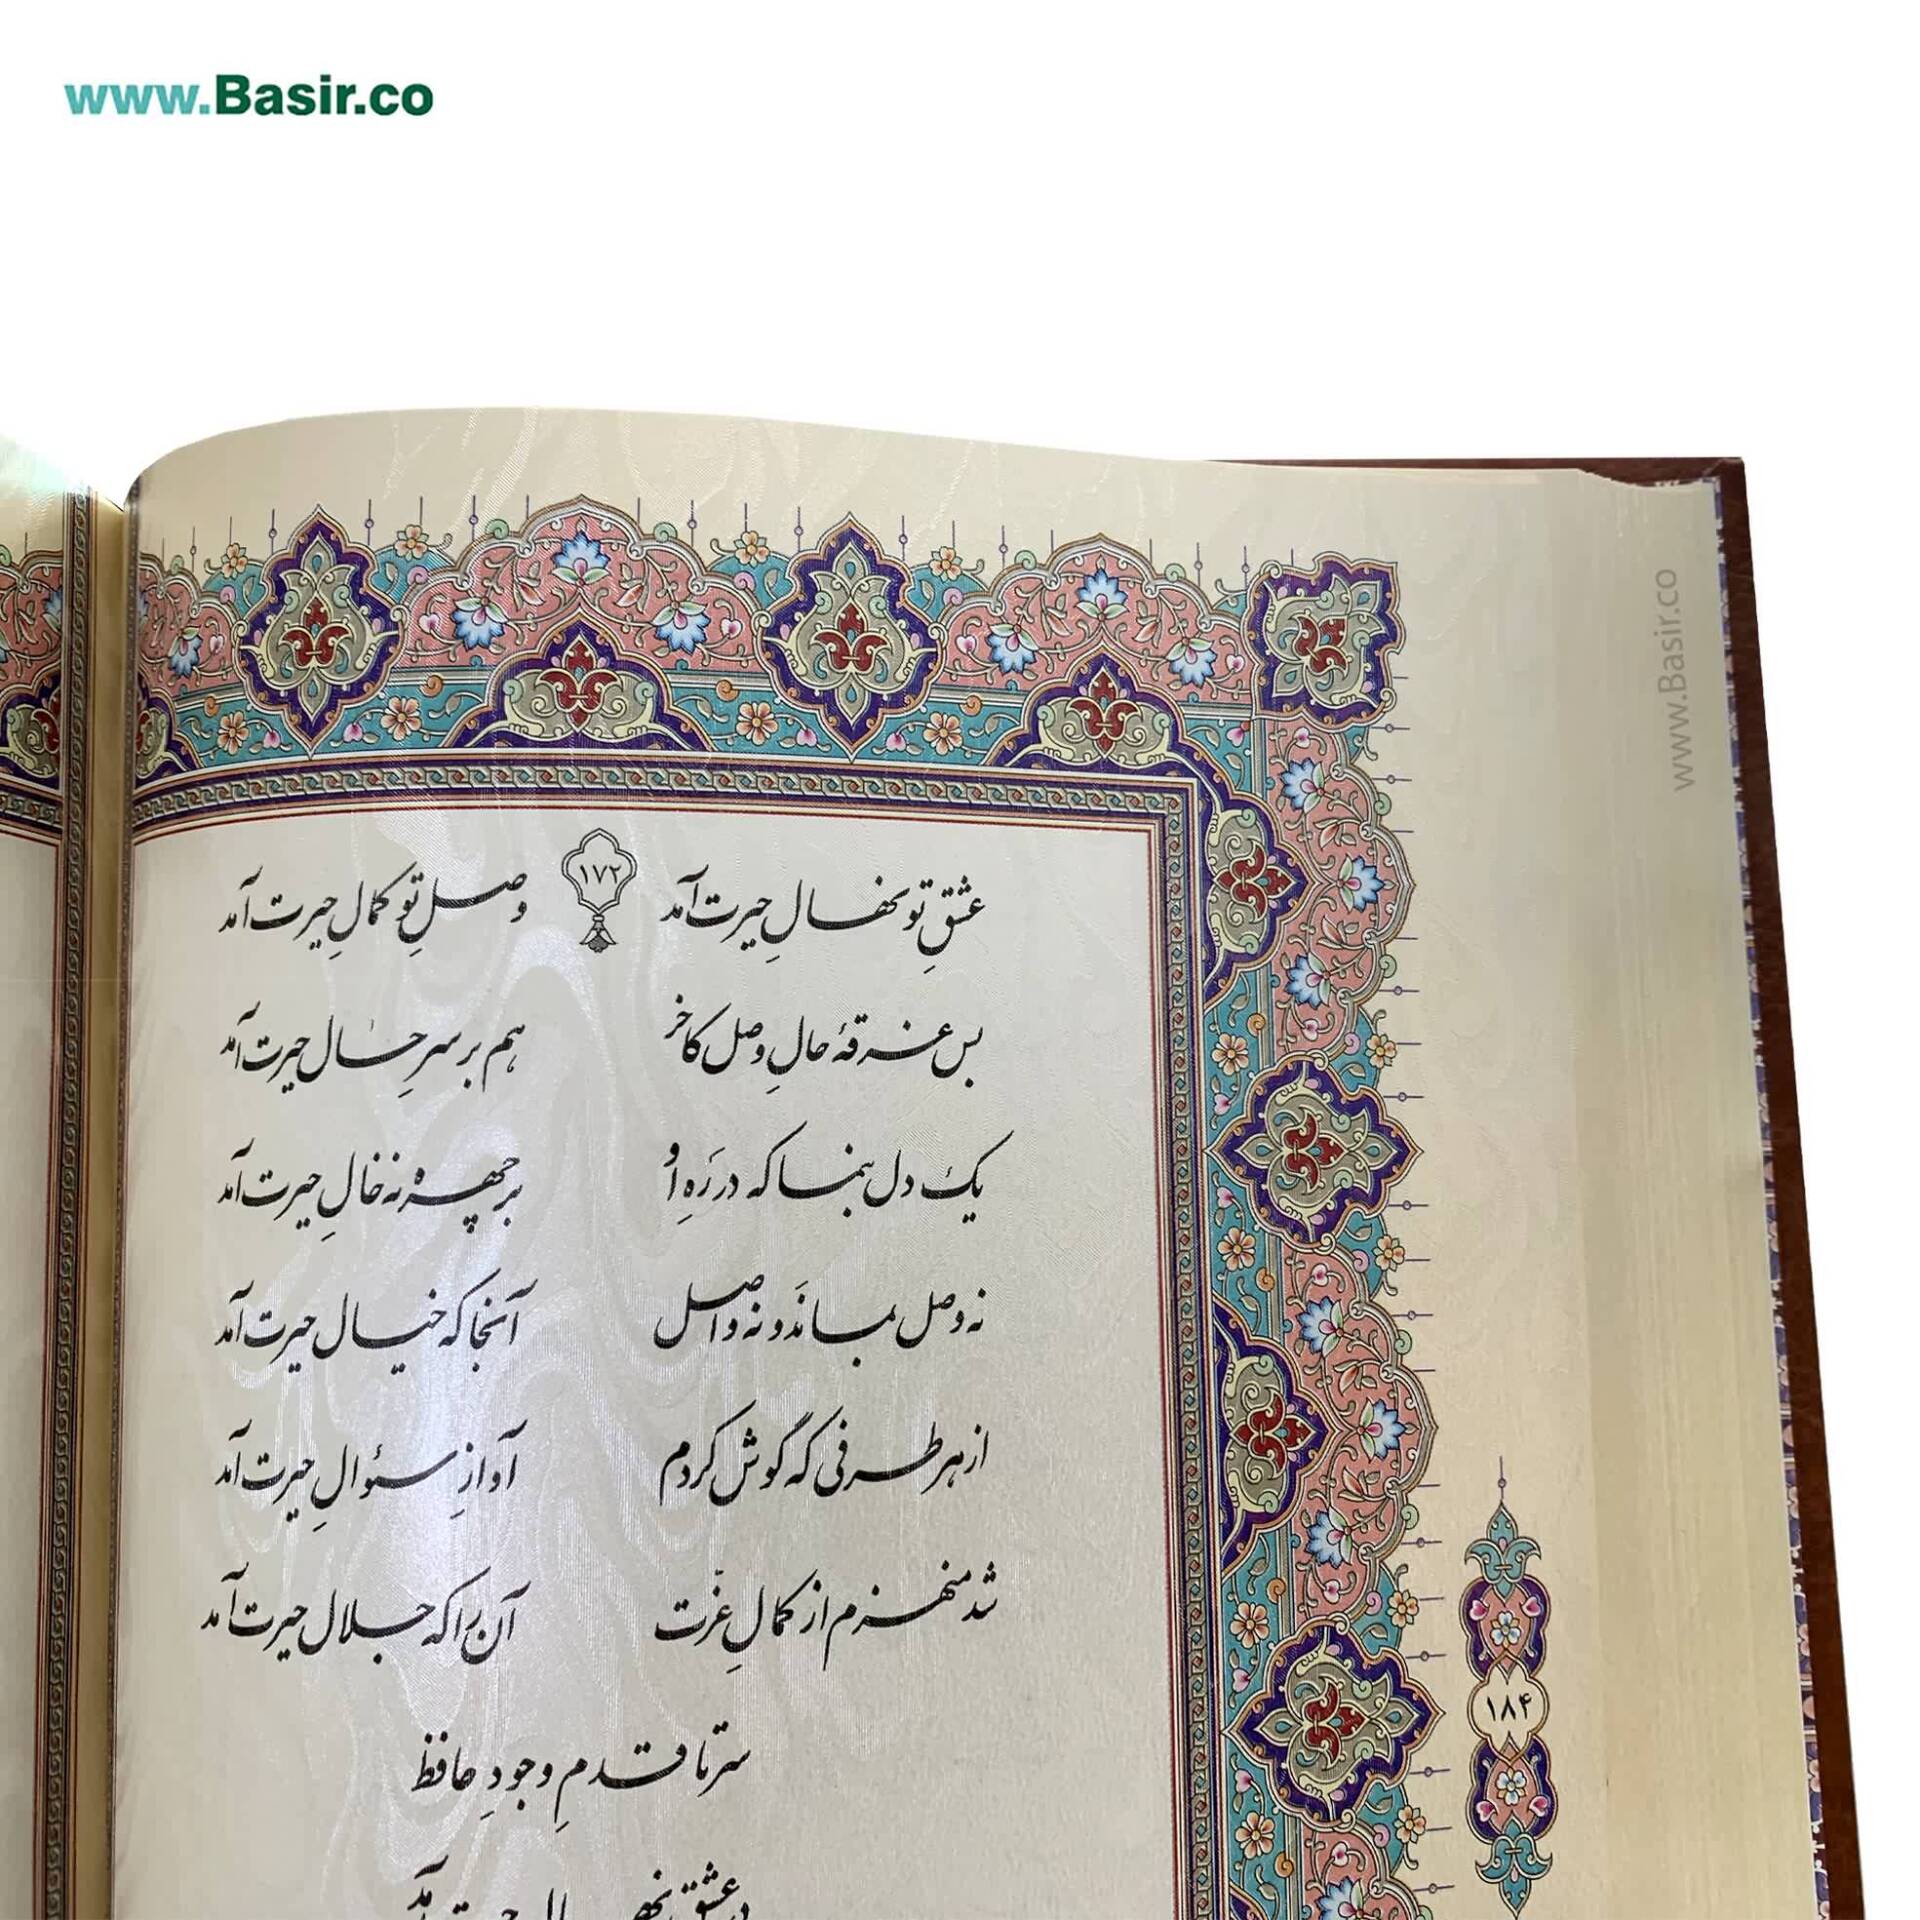 www.Basir.co
www.Basir.co
۱۷۲
عشقِ تو نهالِ حیرت آمد وصلِ تو کمالِ حیرت آمد
بس غرقهٔ حالِ وصل کاخر هم بر سرِ حال حیرت آمد
یک دل بنما که در رَهِ او بر چهره نه خالِ حیرت آمد
نه وصل بماند و نه واصل آنجا که خیال حیرت آمد
از هر طرفی که گوش کردم آوازِ سؤالِ حیرت آمد
شد منهزم از کمالِ عزّت آن را که جلال حیرت آمد
سر تا قدمِ وجودِ حافظ
در عشق نهال حیرت آمد
۱۸۴